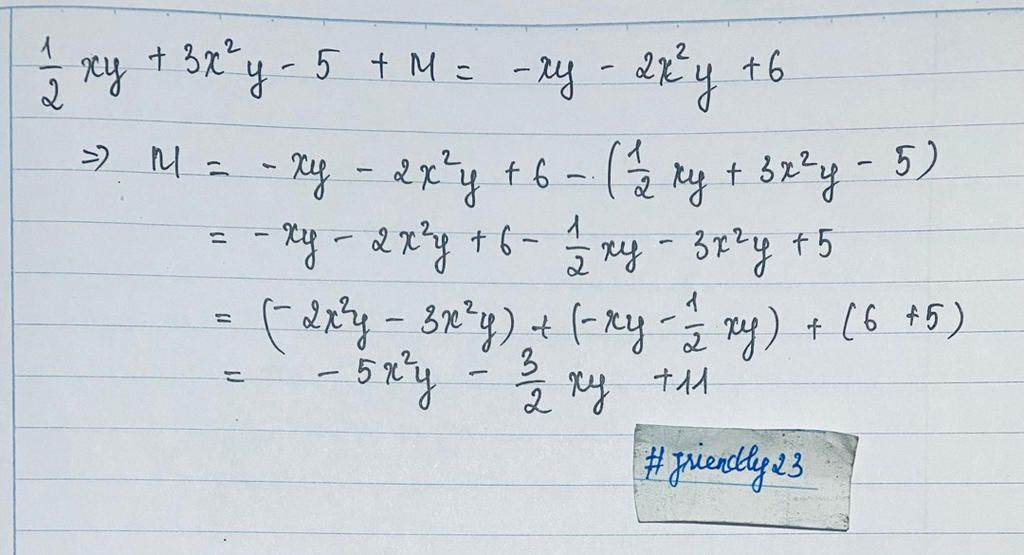 ½ xy + 3x²y - 5 + M = -xy - 2x²y + 6
⇒ M = - xy - 2x²y + 6 - (½ xy + 3x²y - 5)
= - xy - 2x²y + 6 - ½ xy - 3x²y + 5
= (- 2x²y - 3x²y) + (-xy - ½ xy) + (6 + 5)
= - 5x²y - 3/2 xy + 11
#friendly23